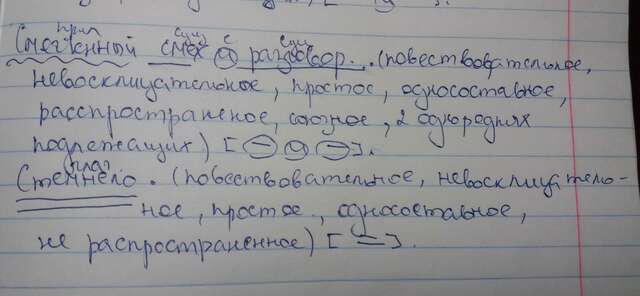 прил сущ с сущ
Смягченный смех и разговор... (повествовательное,
невосклицательное, простое, односоставное,
расспространеное, союзное, 2 однородних
подлежащих) [⊖ и ⊖].
глаг
Стемнело. (повествовательное, невосклицатело-
ное, простое, односоставное,
не распространенное) [=].